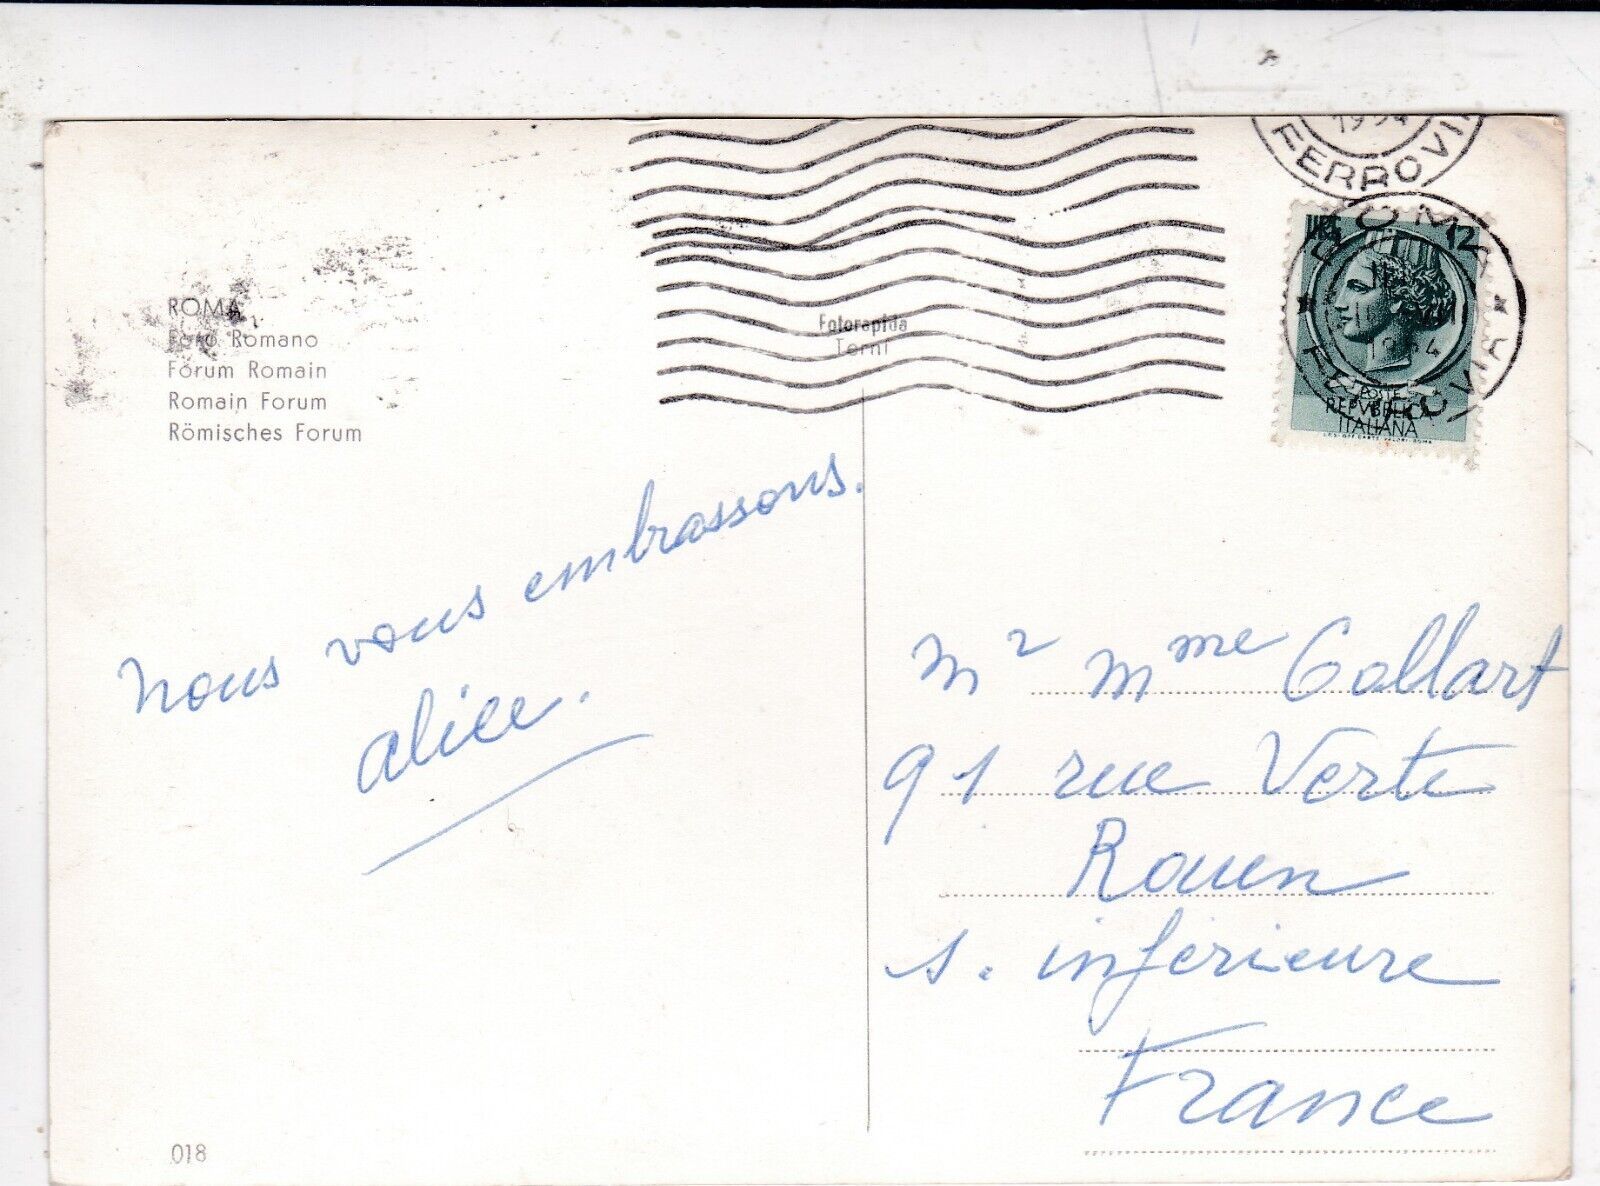 ROMA
Foro Romano
Forum Romain
Romain Forum
Römisches Forum
nous vous embrassons.
alice.
018
Fotorapida
Terni
1954
FERROVIA
ROMA
12
FERROVIA
POSTE
REPVBBLICA
ITALIANA
Mr Mme Collart
91 rue Verte
Rouen
S. inférieure
France